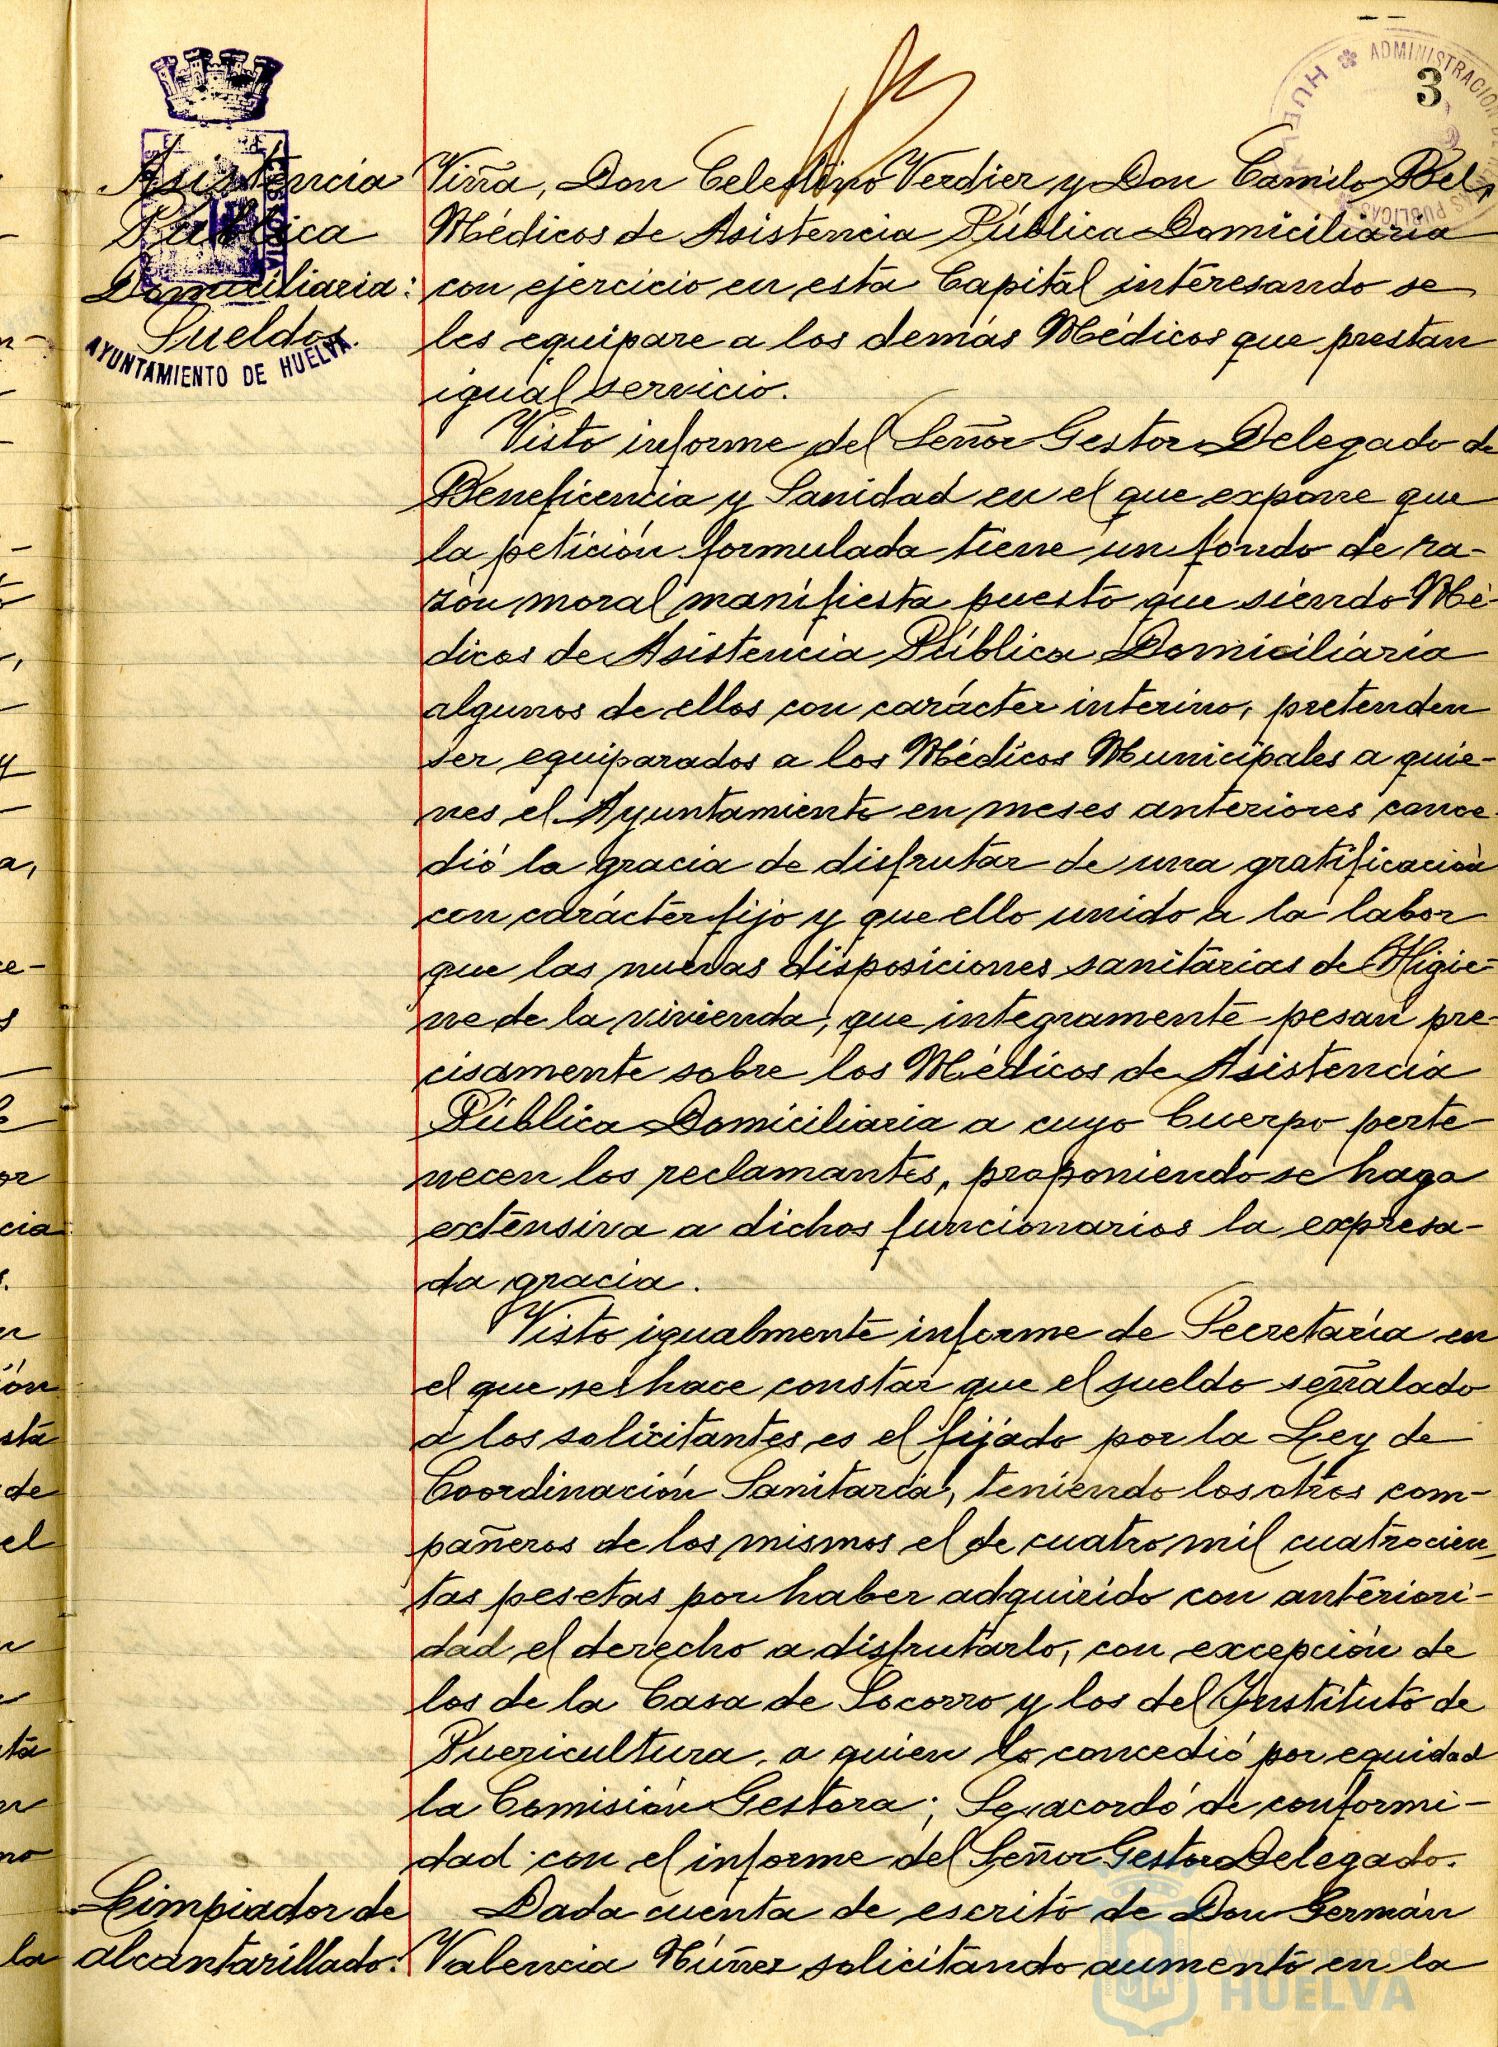 3
ADMINISTRACION DE
HUELVA
Asistencia
Pública
Domiciliaria:
Sueldos.
AYUNTAMIENTO DE HUELVA
Viña, Don Celestino Verdier y Don Camilo Bel,
Médicos de Asistencia Pública Domiciliaria
con ejercicio en esta Capital interesando se
les equipare a los demás Médicos que prestan
igual servicio.
Visto informe del Señor Gestor Delegado de
Beneficencia y Sanidad en el que expone que
la petición formulada tiene un fondo de ra-
zón moral manifiesta puesto que siendo Mé-
dicos de Asistencia Pública Domiciliaria
algunos de ellos con carácter interino, pretenden
ser equiparados a los Médicos Municipales a quie-
nes el Ayuntamiento en meses anteriores conce-
dió la gracia de disfrutar de una gratificación
con carácter fijo y que ello unido a la labor
que las nuevas disposiciones sanitarias de Higie-
ne de la vivienda, que integramente pesan pre-
cisamente sobre los Médicos de Asistencia
Pública Domiciliaria a cuyo Cuerpo perte-
necen los reclamantes, proponiendo se haga
extensiva a dichos funcionarios la expresa-
da gracia.
Visto igualmente informe de Secretaría en
el que se hace constar que el sueldo señalado
a los solicitantes es el fijado por la Ley de
Coordinación Sanitaria, teniendo los otros com-
pañeros de los mismos el de cuatro mil cuatrocien-
tas pesetas por haber adquirido con anteriori-
dad el derecho a disfrutarlo, con excepción de
los de la Casa de Socorro y los del Instituto de
Puericultura, a quien lo concedió por equidad
la Comisión Gestora; Se acordó de conformi-
dad con el informe del Señor Gestor Delegado.
Limpiador de
alcantarillado:
Dada cuenta de escrito de Don Germán
Valencia Núñez solicitando aumento en la
Ayuntamiento de
HUELVA